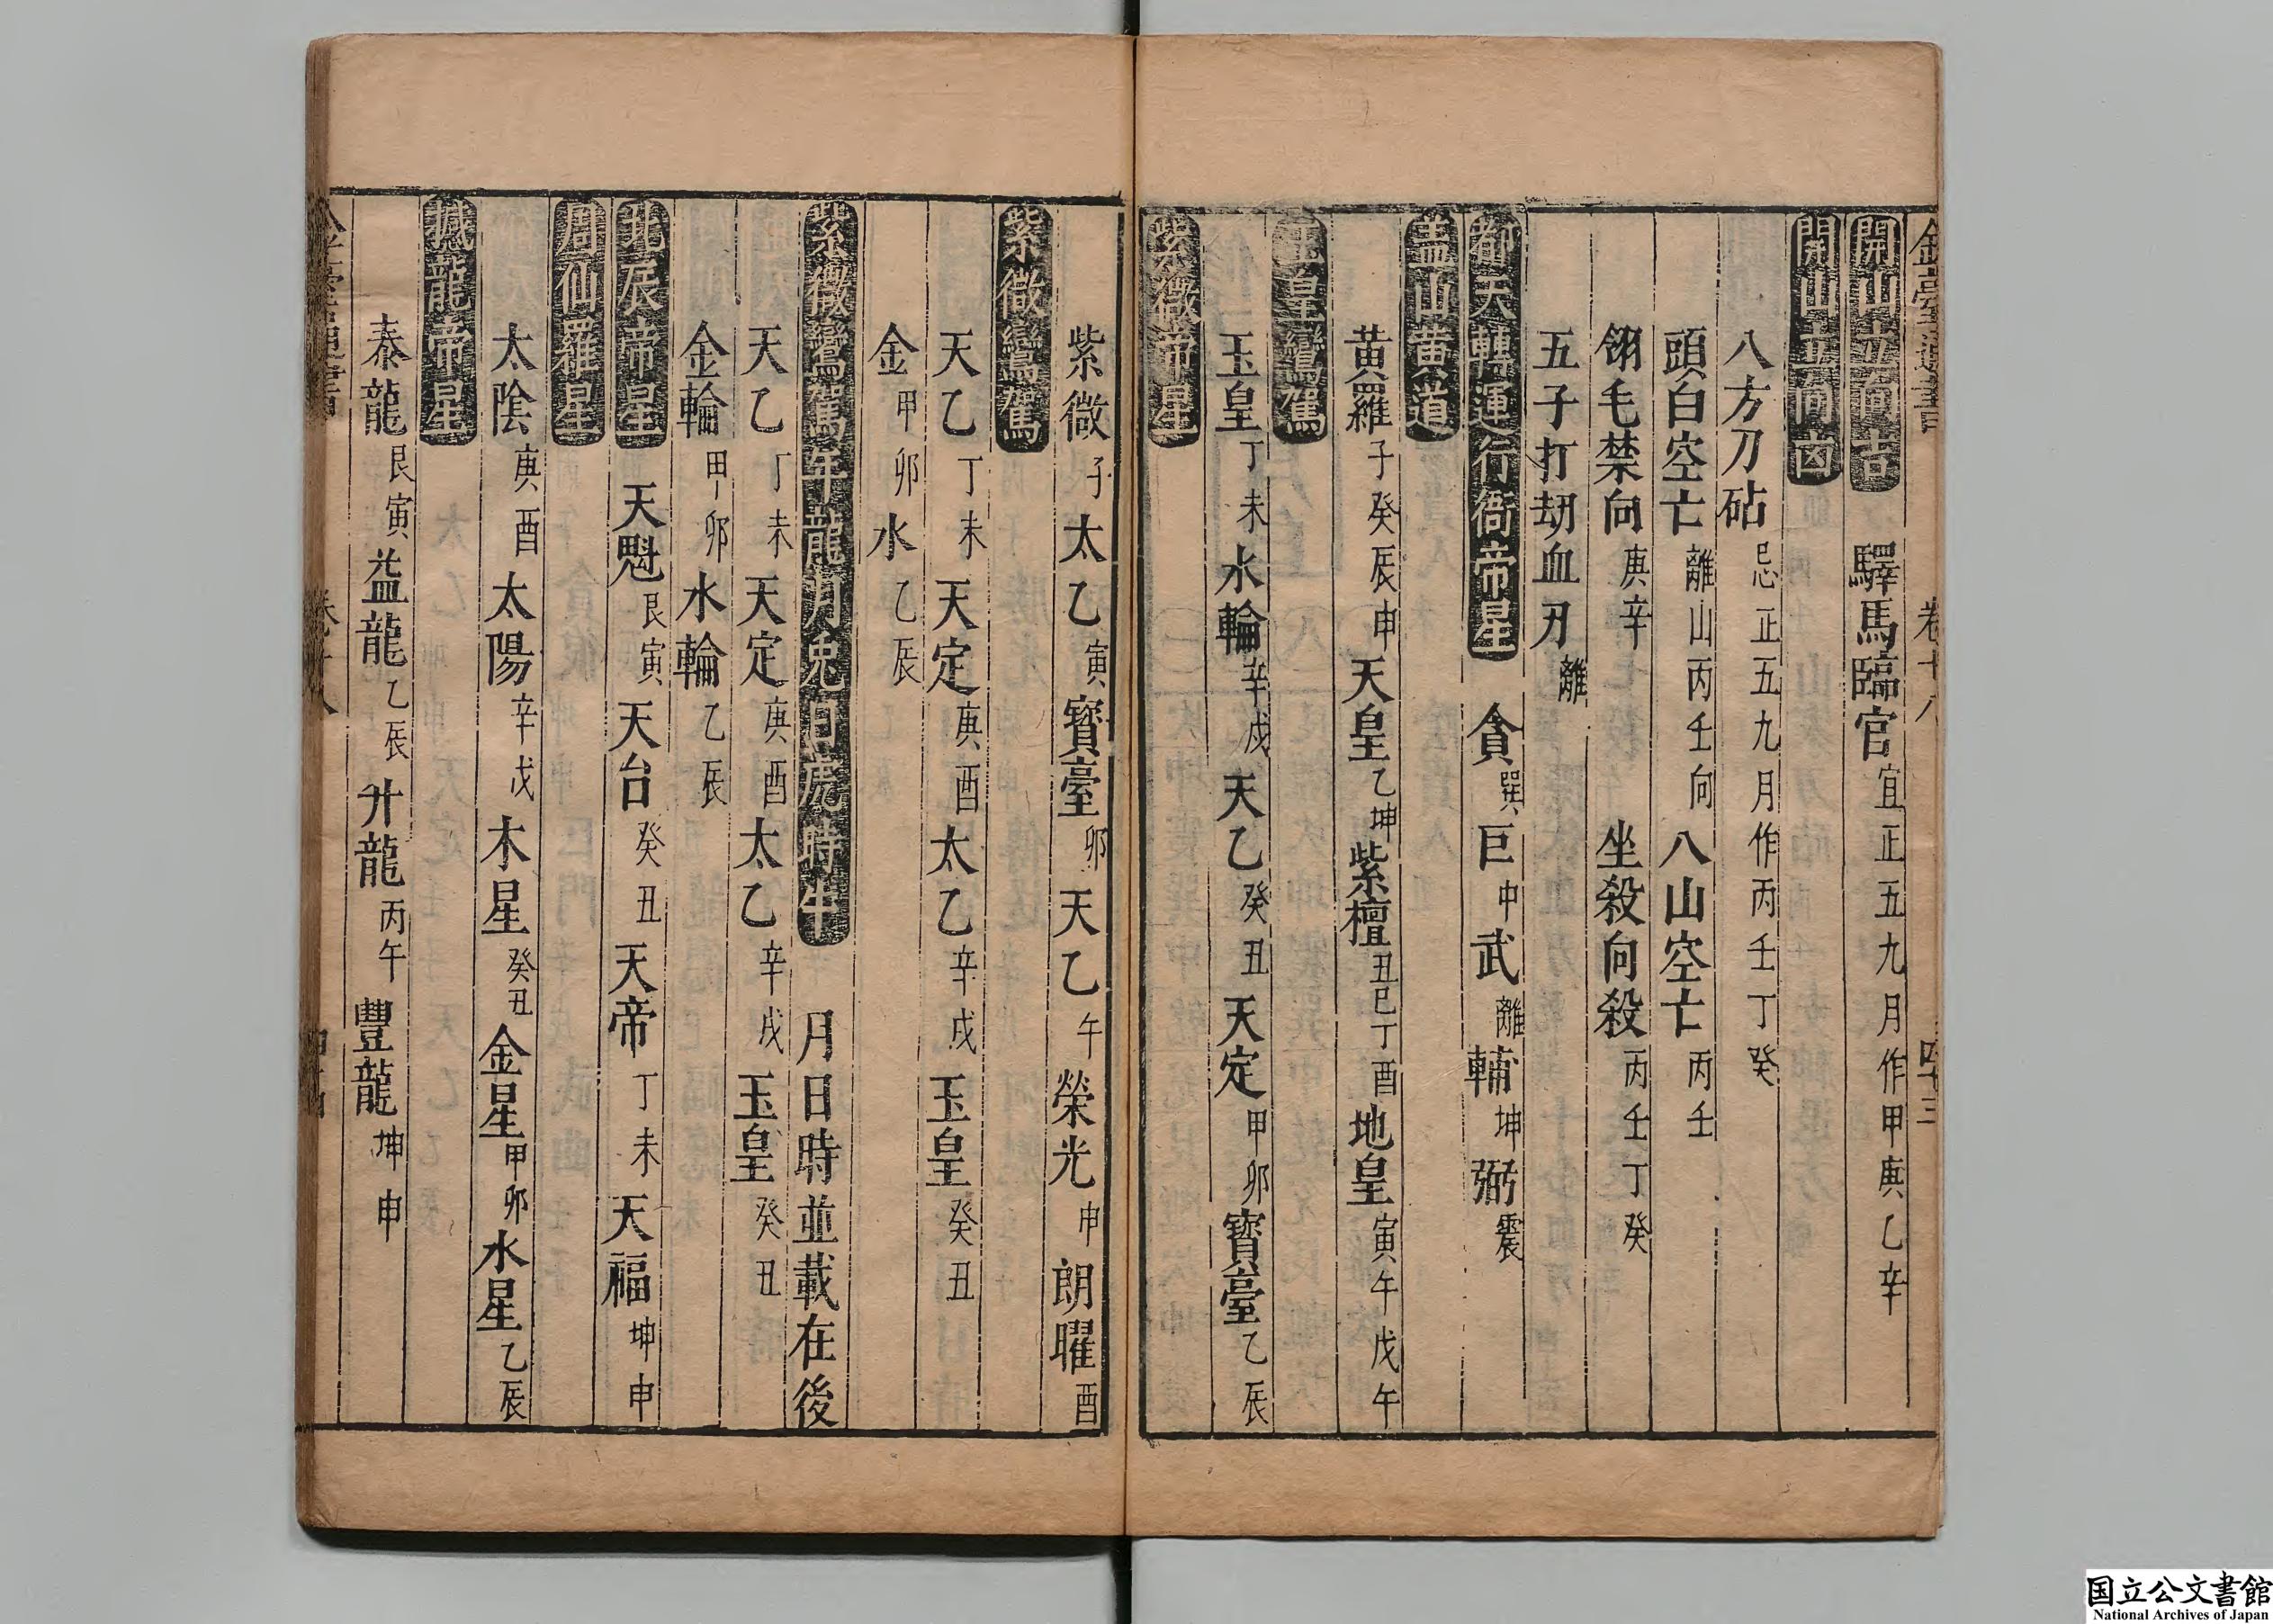 開山立向吉 驛馬臨官 宜正五九月作甲庚乙辛
開山立向凶
八方刀砧 忌正五九月作丙壬丁癸
頭白空亡 離山丙壬向 八山空亡 丙壬
翎毛禁向 庚辛 坐殺向殺 丙壬丁癸
五子打劫血刃 離
都天轉運行衙帝星 貪 巽 巨 中 武 離 輔 坤 弼 震
盖山黄道
黄羅 子癸辰申 天皇 乙坤 紫檀 丑巳丁酉 地皇 寅午戌午
玉皇鸞駕
玉皇 丁未 水輪 辛戌 天乙 癸丑 天定 甲卯 寳臺 乙辰
紫微帝星
紫微 子 太乙 寅 寳臺 卯 天乙 午 榮光 申 朗曜 酉
紫微鸞駕
天乙 丁未 天定 庚酉 太乙 辛戌 玉皇 癸丑
金 甲卯 水 乙辰
紫微鸞駕年龍月兔日虎時牛 月日時並載在後
天乙 丁未 天定 庚酉 太乙 辛戌 玉皇 癸丑
金輪 甲卯 水輪 乙辰
北辰帝星 天魁 艮寅 天台 癸丑 天帝 丁未 天福 坤申
周仙羅星
太陰 庚酉 太陽 辛戌 木星 癸丑 金星 甲卯 水星 乙辰
撼龍帝星
泰龍 艮寅 益龍 乙辰 升龍 丙午 豐龍 坤申
国立公文書館
National Archives of Japan